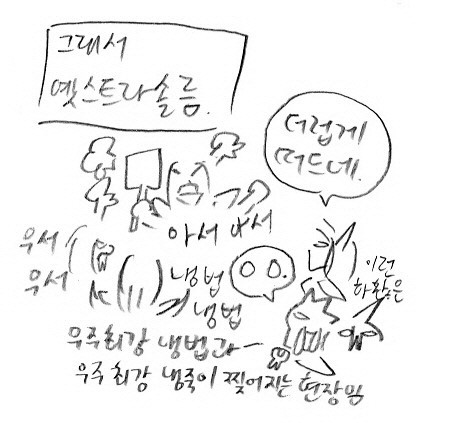 그래서
옛스트라솔름.
더럽게
떠드네.
아서 아서
우서
우서
냉법
냉법
ㅇㅇ.
이런
하찮은
우주최강 냉법과
우주 최강 냉죽이 찢어지는 현장임